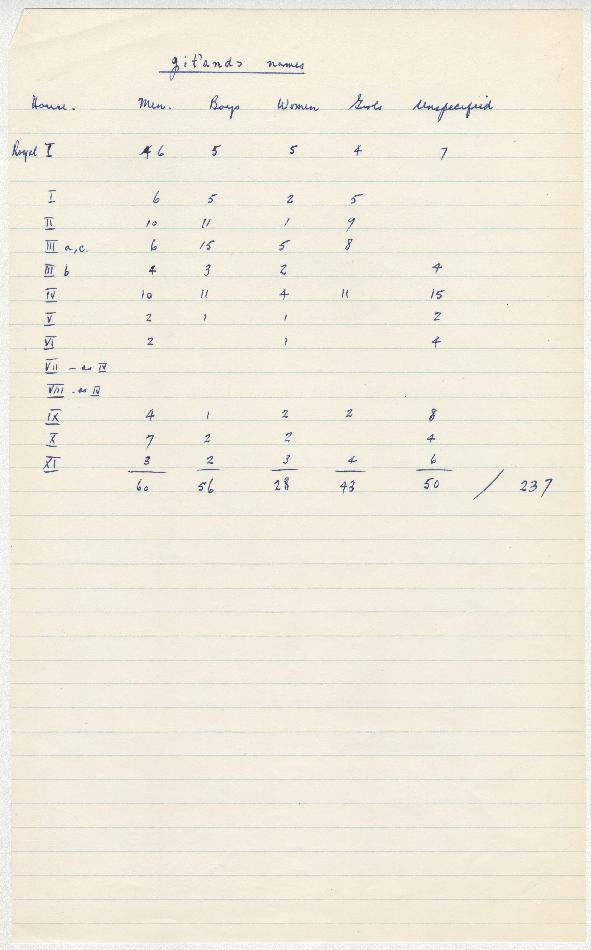 git'ands names
House. Men. Boys Women Girls Unspecified
Royal I 6 5 5 4 7
I 6 5 2 5
II 10 11 1 9
III a,c. 6 15 5 8
III b 4 3 2 4
IV 10 11 4 11 15
V 2 1 1 2
VI 2 1 4
VII - as IV
VIII - as IV
IX 4 1 2 2 8
X 7 2 2 4
XI 3 2 3 4 6
60 56 28 43 50 / 237